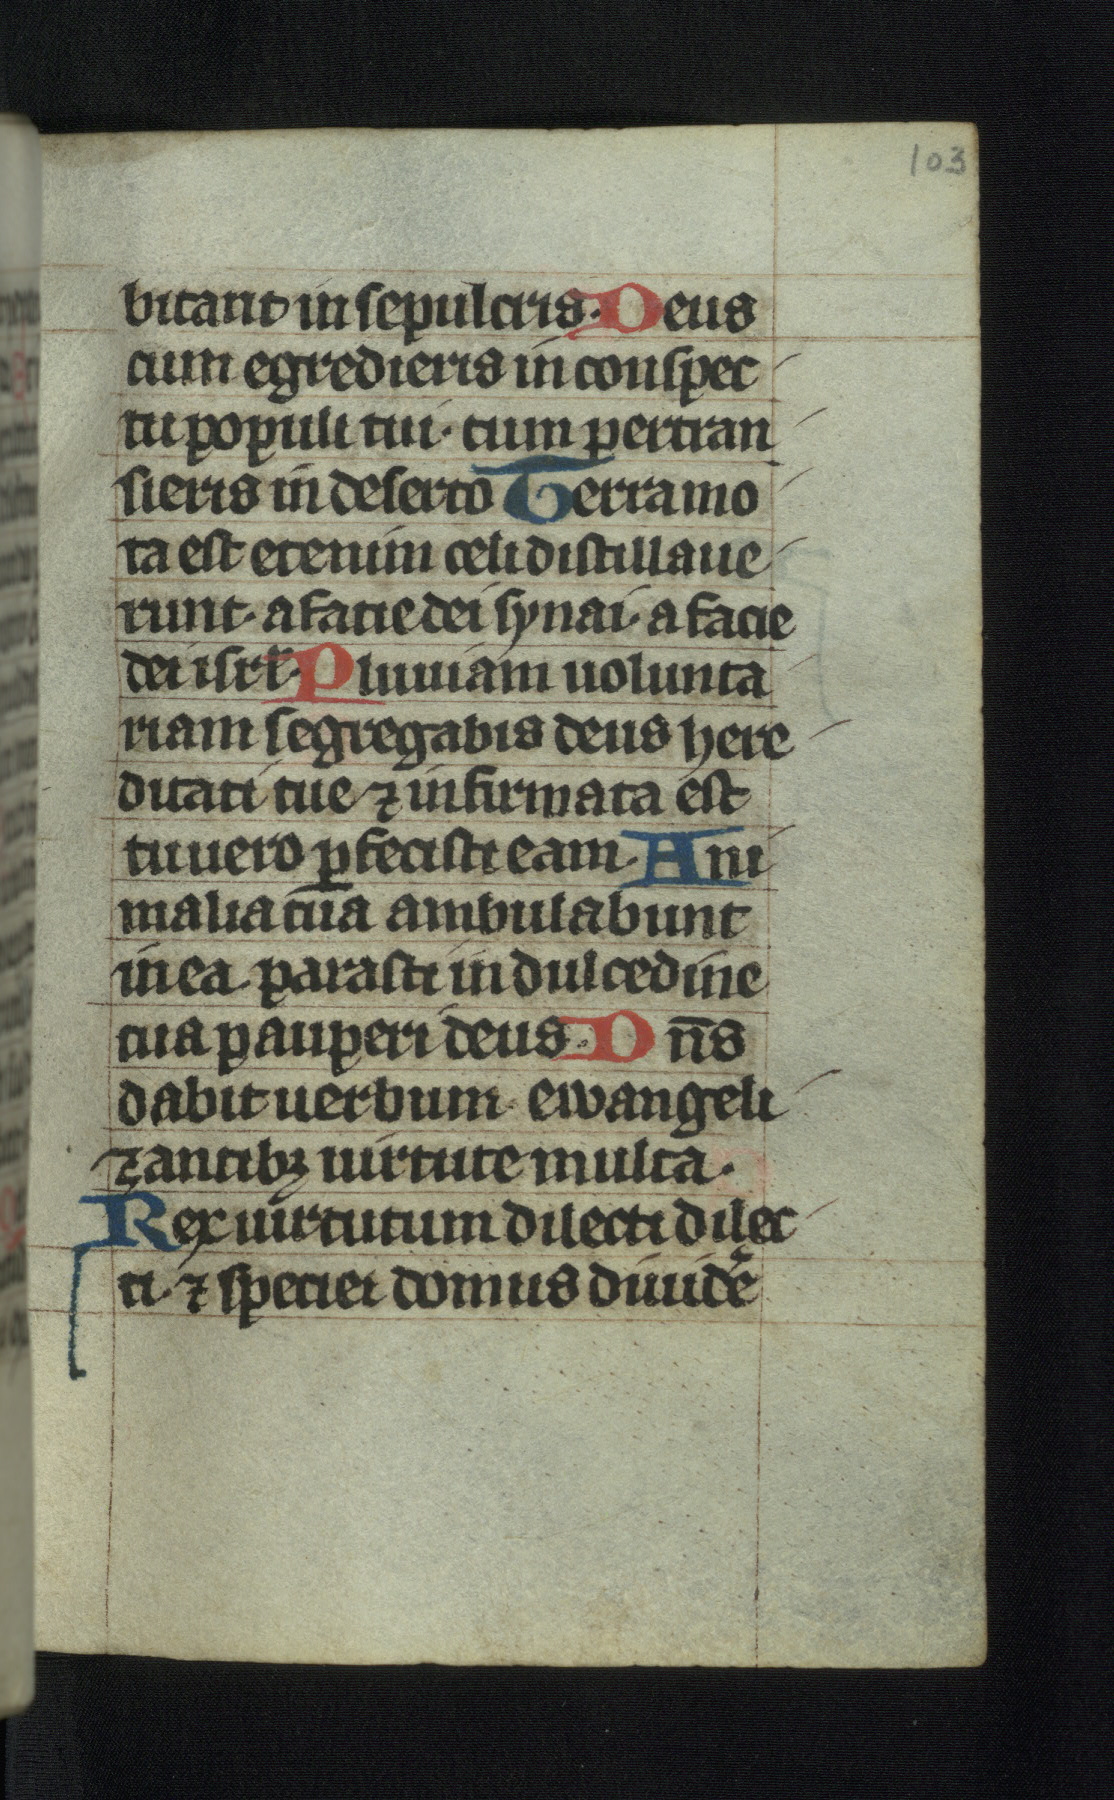 103
bitant in sepulcris. Deus
cum egredieris in conspec
tu populi tui. cum pertran
sieris in deserto Terra mo
ta est etenim celi distillaue
runt. a facie dei synai. a facie
dei isrl. Pluuiam uolunta
riam segregabis deus here
ditati tue ⁊ infirmata est
tu uero ꝑfecisti eam. Ani
malia tua ambulabunt
in ea. parasti in dulcedine
tua pauperi deus. Dn̄s
dabit uerbum ewangeli
zantibꝫ uirtute multa.
Rex uirtutum dilecti dilec
ti. ⁊ speciei domus diuidē